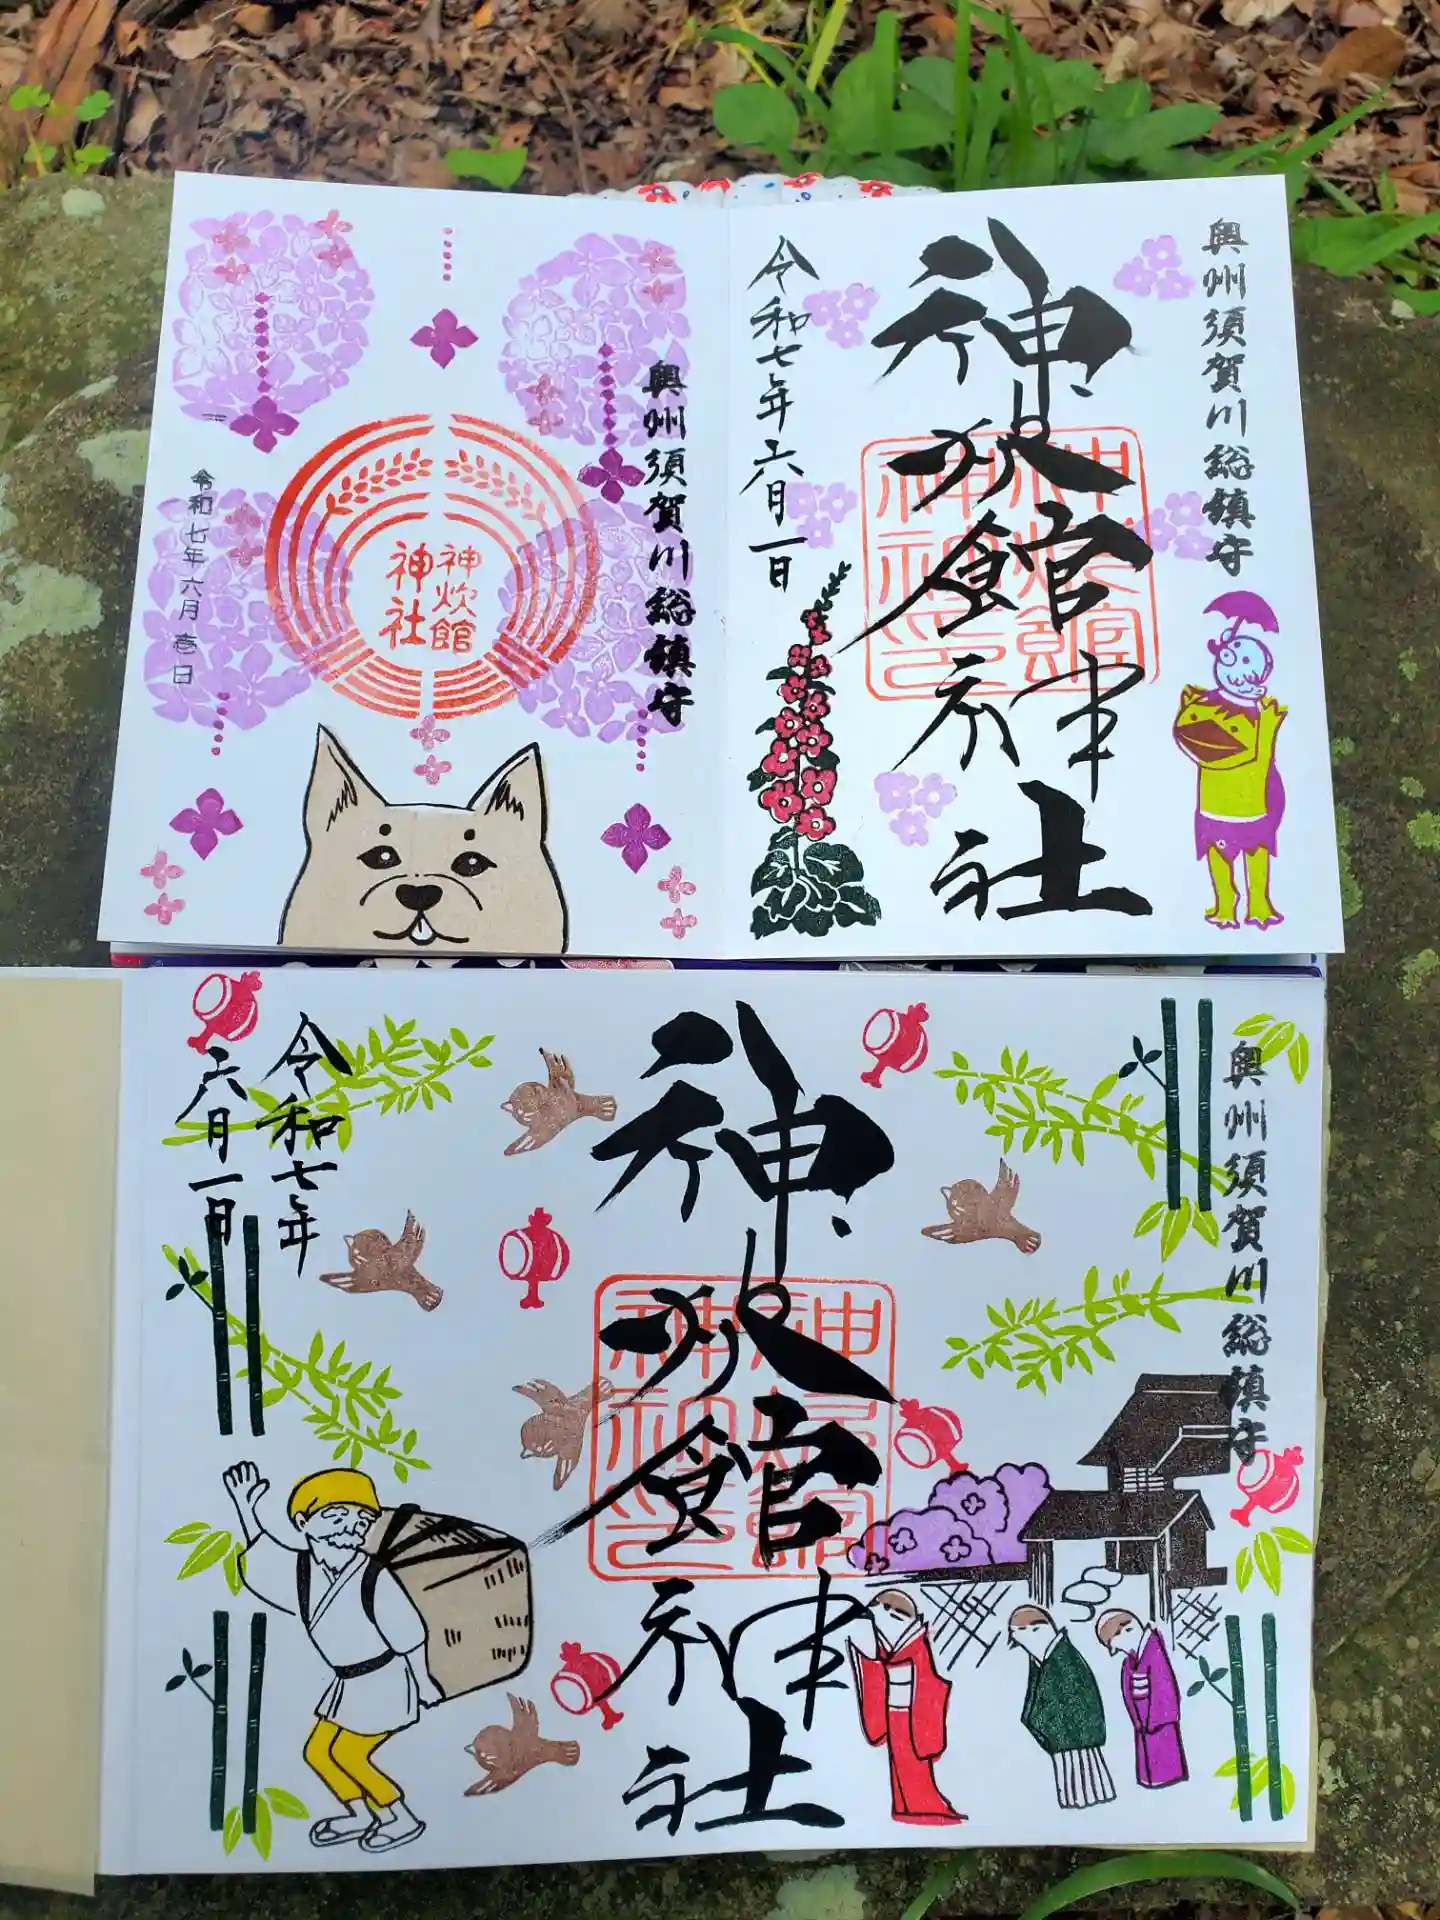 奥州須賀川総鎮守
神炊館神社
神炊館神社印
令和七年六月一日
奥州須賀川総鎮守
神炊館
神社
令和七年六月壱日
奥州須賀川総鎮守
神炊館神社
神炊館神社印
令和七年
六月一日